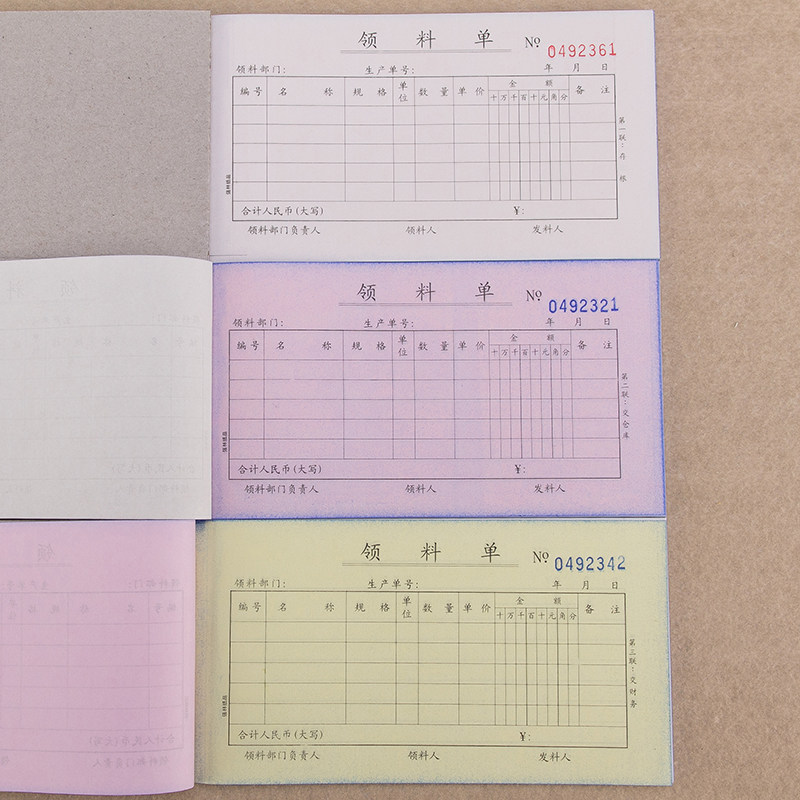 领料单 No 0492361
领料部门: 生产单号: 年 月 日
编号 名称 规格 单位 数量 单价 金额 备注
十 万 千 百 十 元 角 分
第一联:存根
合计人民币(大写) ¥:
领料部门负责人 领料人 发料人
领料单 No 0492321
领料部门: 生产单号: 年 月 日
编号 名称 规格 单位 数量 单价 金额 备注
十 万 千 百 十 元 角 分
第二联:交仓库
合计人民币(大写) ¥:
领料部门负责人 领料人 发料人
领料单 No 0492342
领料部门: 生产单号: 年 月 日
编号 名称 规格 单位 数量 单价 金额 备注
十 万 千 百 十 元 角 分
第三联:交财务
合计人民币(大写) ¥:
领料部门负责人 领料人 发料人